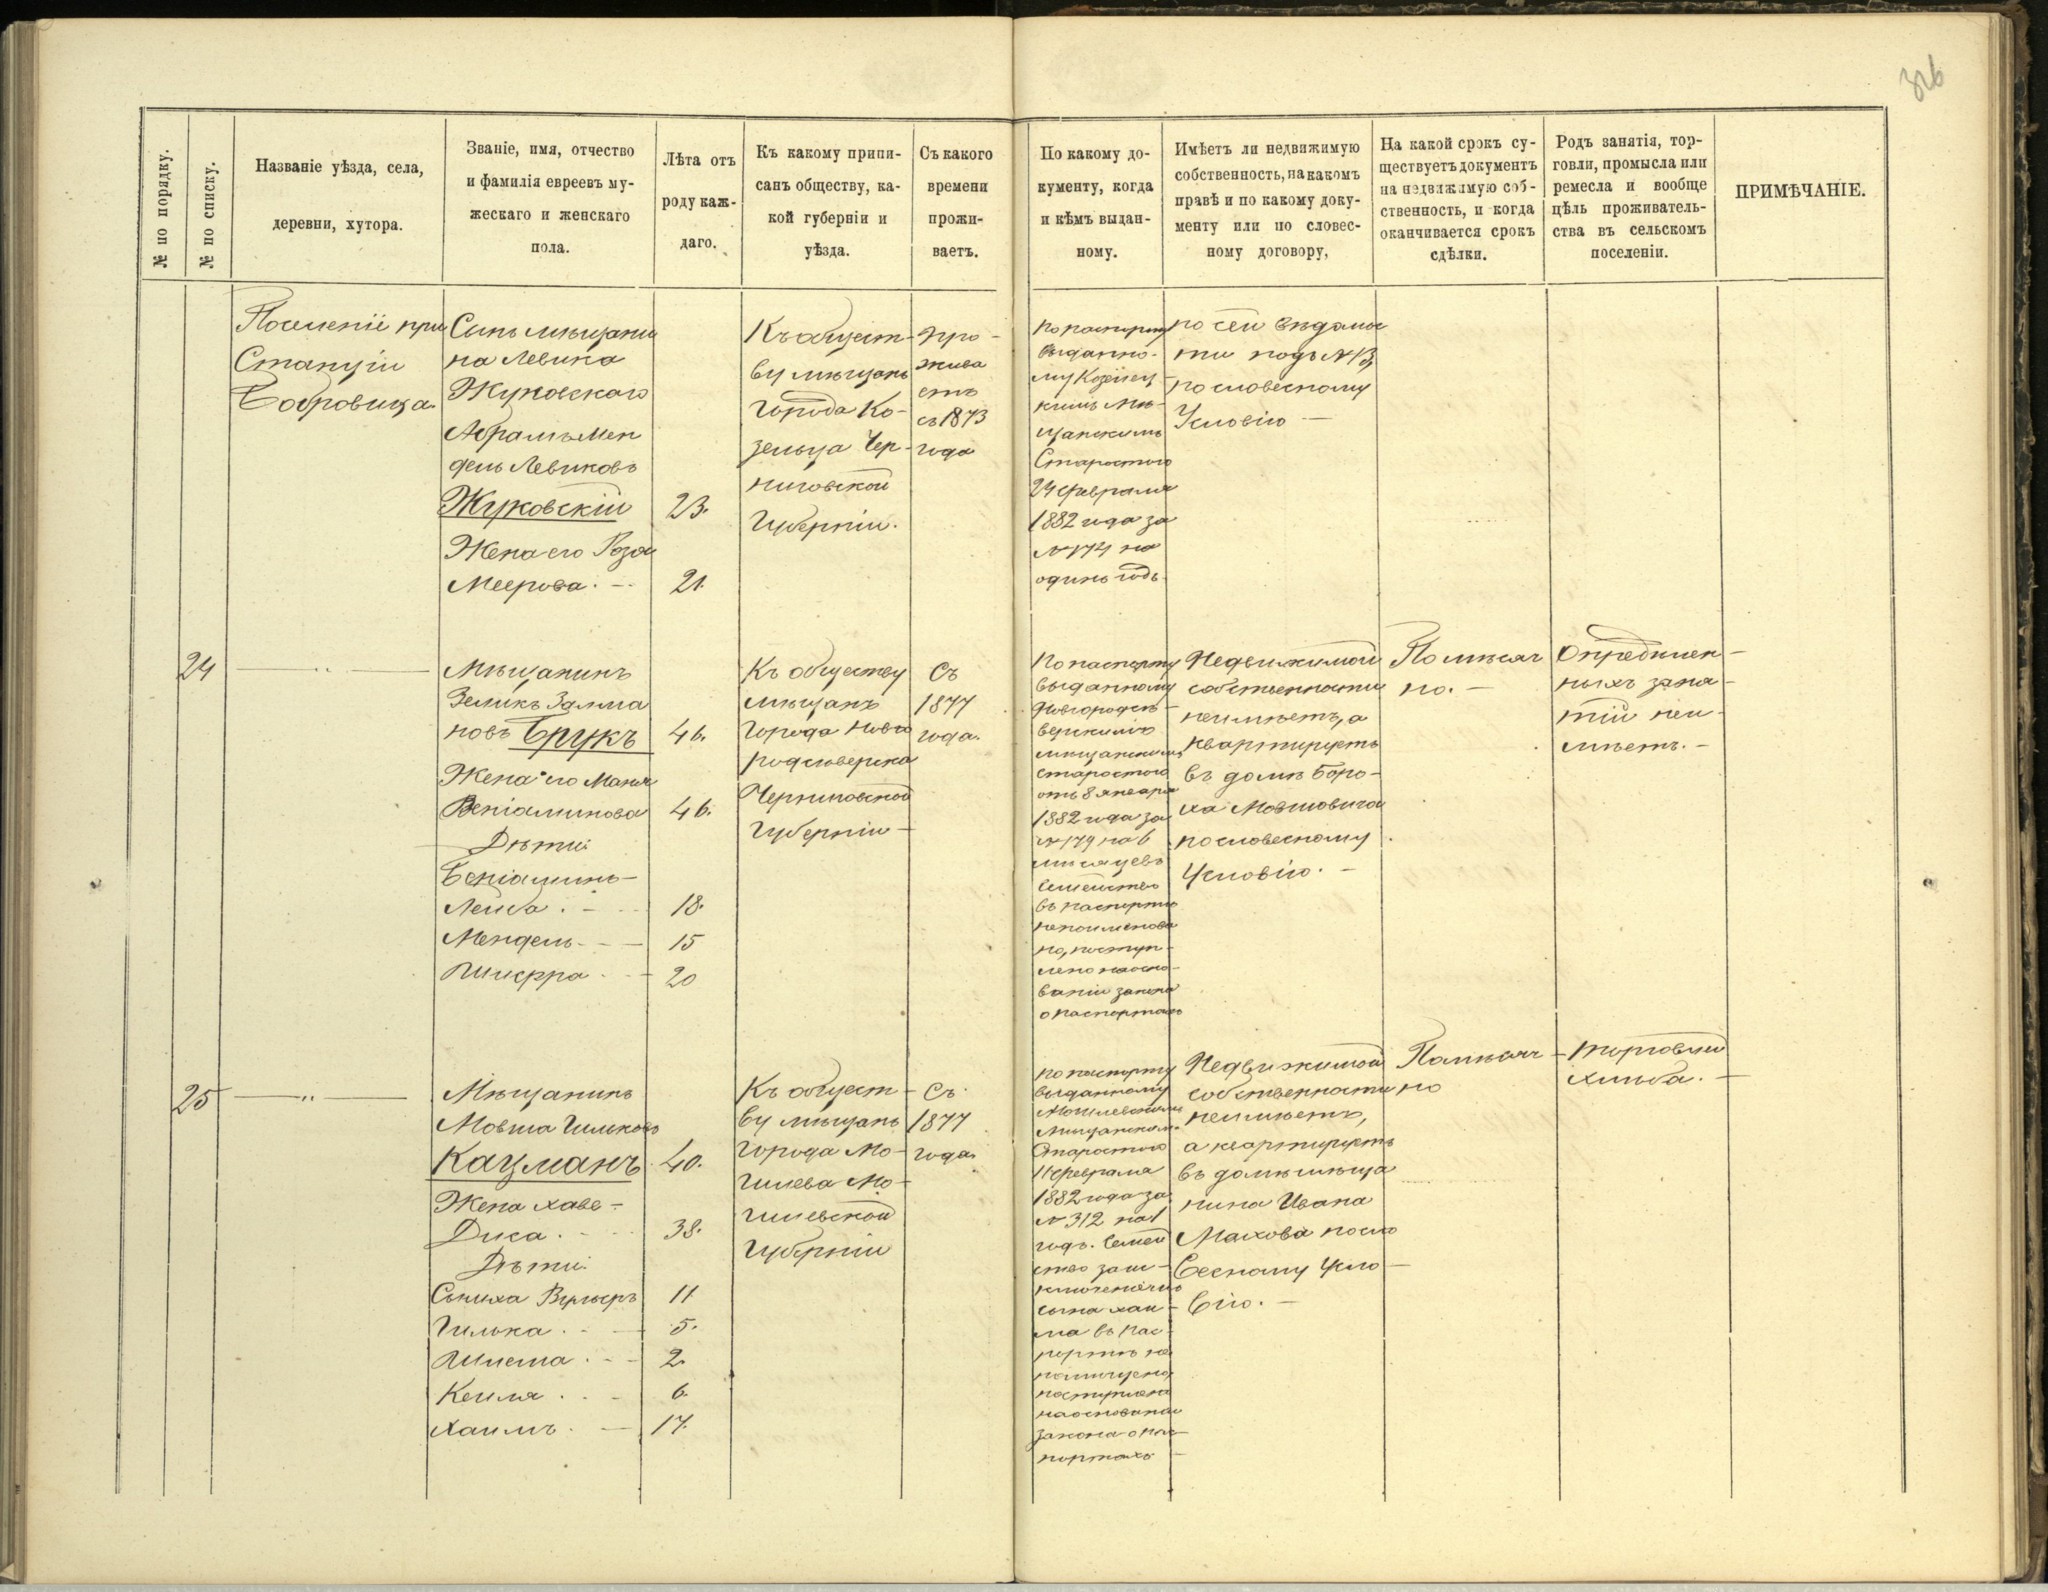 326
№ по порядку.
№ по списку.
Названіе уѣзда, села,
деревни, хутора.
Званіе, имя, отчество
и фамилія евреевъ му-
жескаго и женскаго
пола.
Лѣта отъ
роду каж-
даго.
Къ какому припи-
санъ обществу, ка-
кой губерніи и
уѣзда.
Съ какого
времени
прожи-
ваетъ.
По какому до-
кументу, когда
и кѣмъ выдан-
ному.
Имѣетъ ли недвижимую
собственность, на какомъ
правѣ и по какому доку-
менту или по словес-
ному договору,
На какой срокъ су-
ществуетъ документъ
на недвижимую соб-
ственность, и когда
оканчивается срокъ
сдѣлки.
Родъ занятія, тор-
говли, промысла или
ремесла и вообще
цѣль проживатель-
ства въ сельскомъ
поселеніи.
ПРИМѢЧАНІЕ.
Поселеніе при
Станціи
Бобровица.
Сынъ мѣщани
на Левика
Жуковскаго
Абрамъ Мен
дель Левиковъ
Жуковскій
Жена его Роза
Меерова. -
23.
21.
Къ общест-
ву мѣщанъ
города Ко-
зельца Чер-
ниговской
Губерніи.
Про-
жива
етъ
съ 1873
года
по паспорту
выданно-
му Козелец-
кимъ Мѣ-
щанскимъ
Старостою
24 февраля
1882 года за
№ 174 на
одинъ годъ.
по сей вѣдомос
ти подъ № 13,
по словесному
Условію -
24
Мѣщанинъ
Зеликъ Залма
новъ Брукъ
Жена его Маня
Веніаминова
Дѣти:
Беніаминъ-
Лейба. -
Мендель - -
Шифра. -
46.
46.
18.
15
20
Къ обществу
мѣщанъ
города Новго
родсѣверска
Черниговской
Губерніи -
Съ
1877
года.
По паспорту
выданному
Новгородсѣ-
верскимъ
мѣщанскимъ
старостою
отъ 8 января
1882 года за
№ 179 на 6
мѣсяцевъ
Семейство
въ паспортѣ
непоименова
но, поступ-
лено на осно-
ваніи закона
о паспортахъ
Недвижимой
собственности
неимѣетъ, а
квартируетъ
въ домѣ Боро-
ха Мовшовича
по словесному
Условію. -
Помѣсяч
но. -
Опредѣлен-
ныхъ заня-
тій неи-
мѣетъ. -
25
Мѣщанинъ
Мовша Гильковъ
Кацманъ
Жена Хаве-
Диса. -
Дѣти:
Гилька. -
Кейля. -
Хаимъ. -
40.
38.
11
5.
2.
6.
17.
Къ общест-
ву мѣщанъ
города Мо-
гилева Мо-
гилевской
Губерніи
Съ
1877
года.
по паспорту
выданному
Могилевскимъ
Мѣщанскимъ
Старостою
11 февраля
1882 года за
№ 312 на 1
годъ. Семей
ство за ис-
ключеніемъ
сына Хаи-
ма въ пас-
портѣ не
поступлено
на основаніи
закона о пас-
портахъ -
Недвижимой
собственности
неимѣетъ,
а квартируетъ
въ домѣ мѣща
нина Ивана
Махова по сло
весному Усло-
вію. -
Помѣсяч-
но
торговлей
хлѣба. -